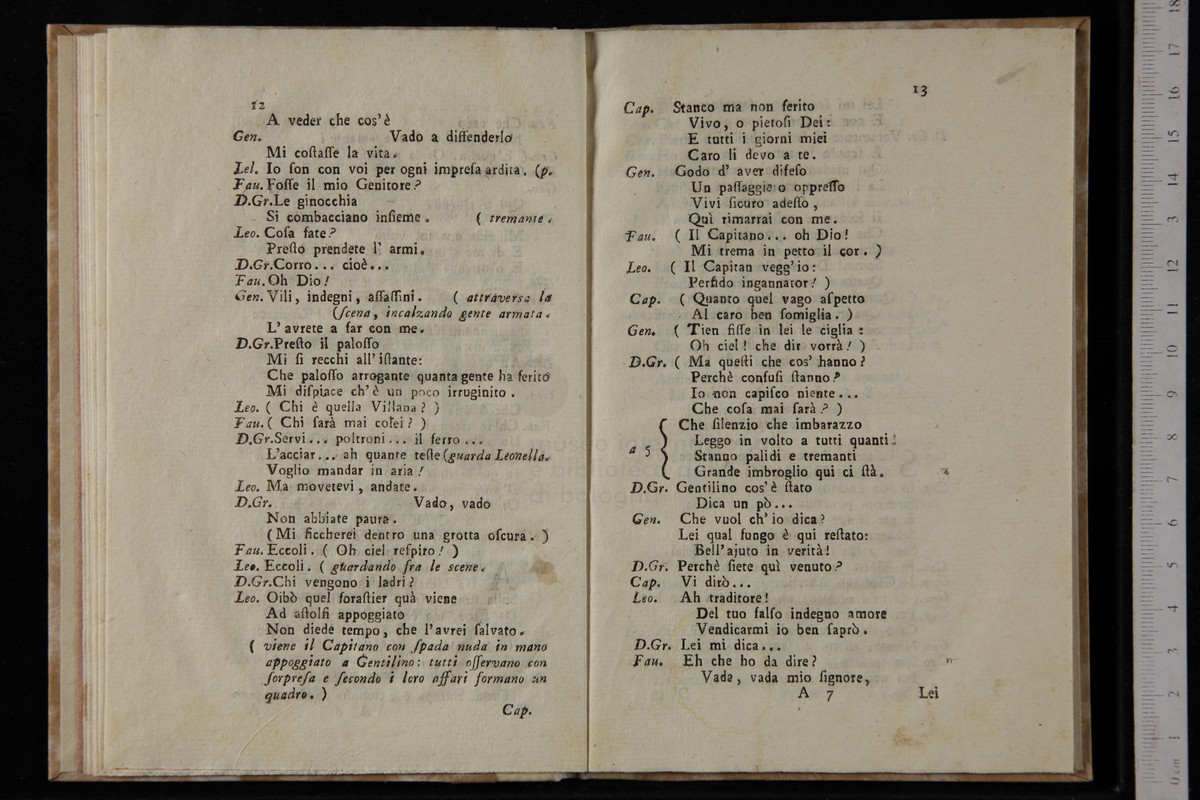 12
A veder che cos'è
Gen. Vado a diffenderlo
Mi coſtaſſe la vita.
Lel. Io ſon con voi per ogni impreſa ardita. (p.
Fau. Foſſe il mio Genitore?
D.Gr. Le ginocchia
Si combacciano inſieme. ( tremante.
Leo. Coſa fate?
Preſto prendete l' armi.
D.Gr. Corro... cioè...
Fau. Oh Dio!
Gen. Vili, indegni, aſſaſſini. ( attraversa la
(ſcena, incalzando gente armata.
L' avrete a far con me.
D.Gr. Preſto il paloſſo
Mi ſi recchi all' iſtante:
Che paloſſo arrogante quanta gente ha ferito
Mi diſpiace ch' è un poco irruginito.
Leo. ( Chi è quella Villana? )
Fau. ( Chi ſarà mai coſei? )
D.Gr. Servi... poltroni... il ferro...
L'acciar... ah quante teſte (guarda Leonella.
Voglio mandar in aria!
Leo. Ma movetevi, andate.
D.Gr. Vado, vado
Non abbiate paura.
(Mi ficcherei dentro una grotta oſcura. )
Fau. Eccoli. ( Oh ciel reſpiro! )
Leo. Eccoli. ( guardando fra le scene.
D.Gr. Chi vengono i ladri?
Leo. Oibò quel foraſtier quà viene
Ad aſtolfi appoggiato
Non diede tempo, che l'avrei ſalvato.
( viene il Capitano con ſpada nuda in mano
appoggiato a Gentilino: tutti oſſervano con
ſorpreſa e ſecondo i loro affari formano un
quadro. )
Cap.
13
Cap. Stanco ma non ferito
Vivo, o pietoſi Dei:
E tutti i giorni miei
Caro li devo a te.
Gen. Godo d' aver difeſo
Un paſſaggiero oppreſſo
Vivi ſicuro adeſſo,
Quì rimarrai con me.
Fau. ( Il Capitano... oh Dio!
Mi trema in petto il cor. )
Leo. ( Il Capitan vegg'io:
Perfido ingannator! )
Cap. ( Quanto quel vago aſpetto
Al caro ben ſomiglia. )
Gen. ( Tien fiſſe in lei le ciglia:
Oh ciel! che dir vorrà! )
D.Gr. ( Ma queſti che cos' hanno?
Perchè confuſi ſtanno?
Io non capiſco niente...
Che coſa mai ſarà? )
Che ſilenzio che imbarazzo
a 5 Leggo in volto a tutti quanti!
Stanno palidi e tremanti
Grande imbroglio qui ci ſtà.
D.Gr. Gentilino cos' è ſtato
Dica un pò...
Gen. Che vuol ch' io dica?
Lei qual fungo è qui reſtato:
Bell'ajuto in verità!
D.Gr. Perchè ſiete quì venuto?
Cap. Vi dirò...
Leo. Ah traditore!
Del tuo falſo indegno amore
Vendicarmi io ben ſaprò.
D.Gr. Lei mi dica...
Fau. Eh che ho da dire?
Vada, vada mio ſignore,
A 7 Lei